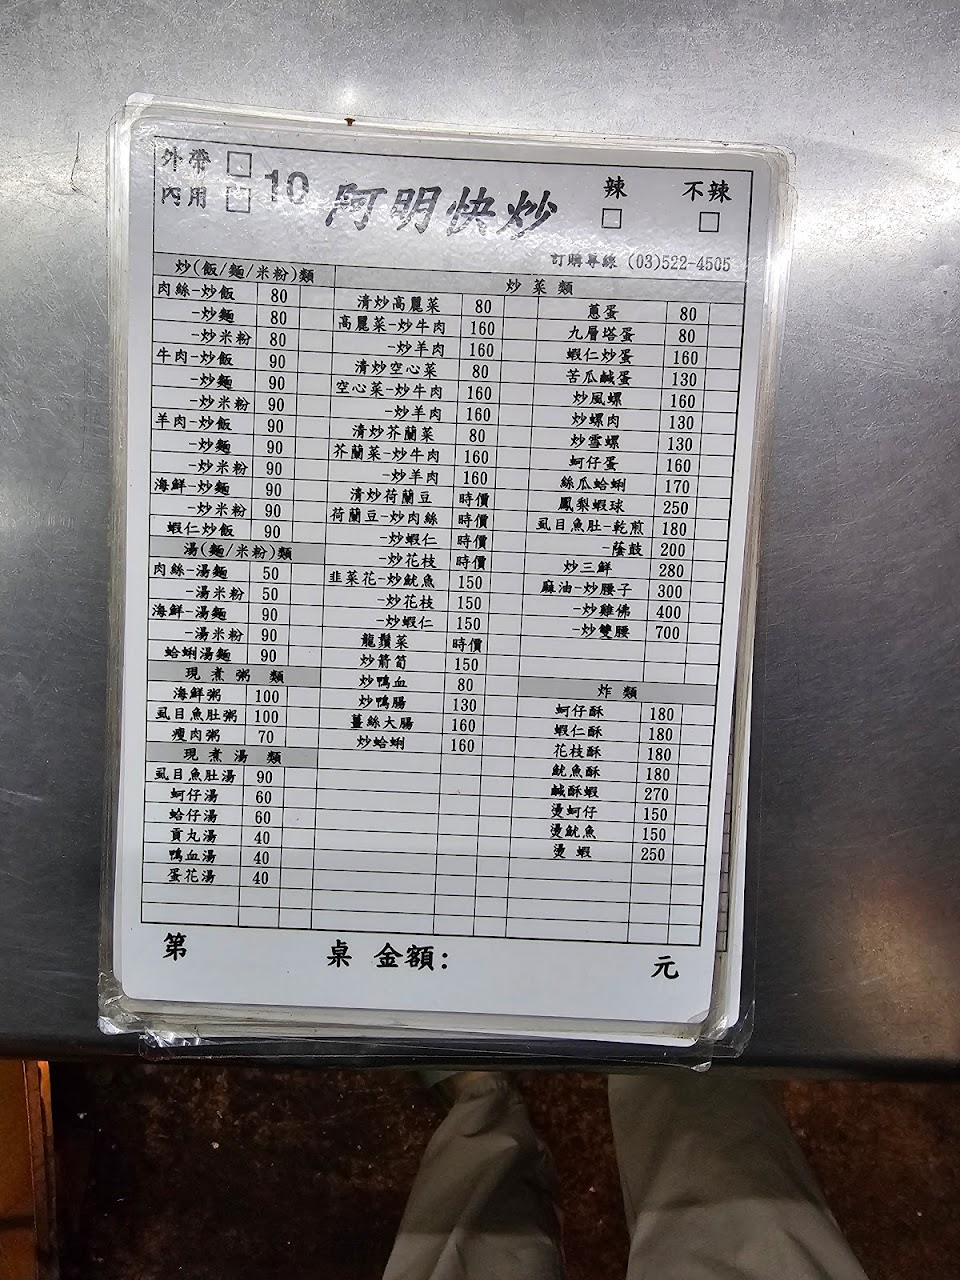 外帶 □
內用 □
10 阿明快炒
辣 不辣
□ □
訂購專線 (03)522-4505
炒(飯/麵/米粉)類
肉絲-炒飯 80
-炒麵 80
-炒米粉 80
牛肉-炒飯 90
-炒麵 90
-炒米粉 90
羊肉-炒飯 90
-炒麵 90
-炒米粉 90
海鮮-炒麵 90
-炒米粉 90
蝦仁炒飯 90
湯(麵/米粉)類
肉絲-湯麵 50
-湯米粉 50
海鮮-湯麵 90
-湯米粉 90
蛤蜊湯麵 90
現煮粥 類
海鮮粥 100
虱目魚肚粥 100
瘦肉粥 70
現煮湯 類
虱目魚肚湯 90
蚵仔湯 60
蛤仔湯 60
貢丸湯 40
鴨血湯 40
蛋花湯 40
炒菜類
清炒高麗菜 80
高麗菜-炒牛肉 160
-炒羊肉 160
清炒空心菜 80
空心菜-炒牛肉 160
-炒羊肉 160
清炒芥蘭菜 80
芥蘭菜-炒牛肉 160
-炒羊肉 160
清炒荷蘭豆 時價
荷蘭豆-炒肉絲 時價
-炒蝦仁 時價
-炒花枝 時價
韭菜花-炒魷魚 150
-炒花枝 150
-炒蝦仁 150
龍鬚菜 時價
炒箭筍 150
炒鴨血 80
炒鴨腸 130
薑絲大腸 160
炒蛤蜊 160
蔥蛋 80
九層塔蛋 80
蝦仁炒蛋 160
苦瓜鹹蛋 130
炒風螺 160
炒螺肉 130
炒雪螺 130
蚵仔蛋 160
絲瓜蛤蜊 170
鳳梨蝦球 250
虱目魚肚-乾煎 180
-蔭鼓 200
炒三鮮 280
麻油-炒腰子 300
-炒雞佛 400
-炒雙腰 700
炸類
蚵仔酥 180
蝦仁酥 180
花枝酥 180
魷魚酥 180
鹹酥蝦 270
燙蚵仔 150
燙魷魚 150
燙 蝦 250
第 桌 金額: 元